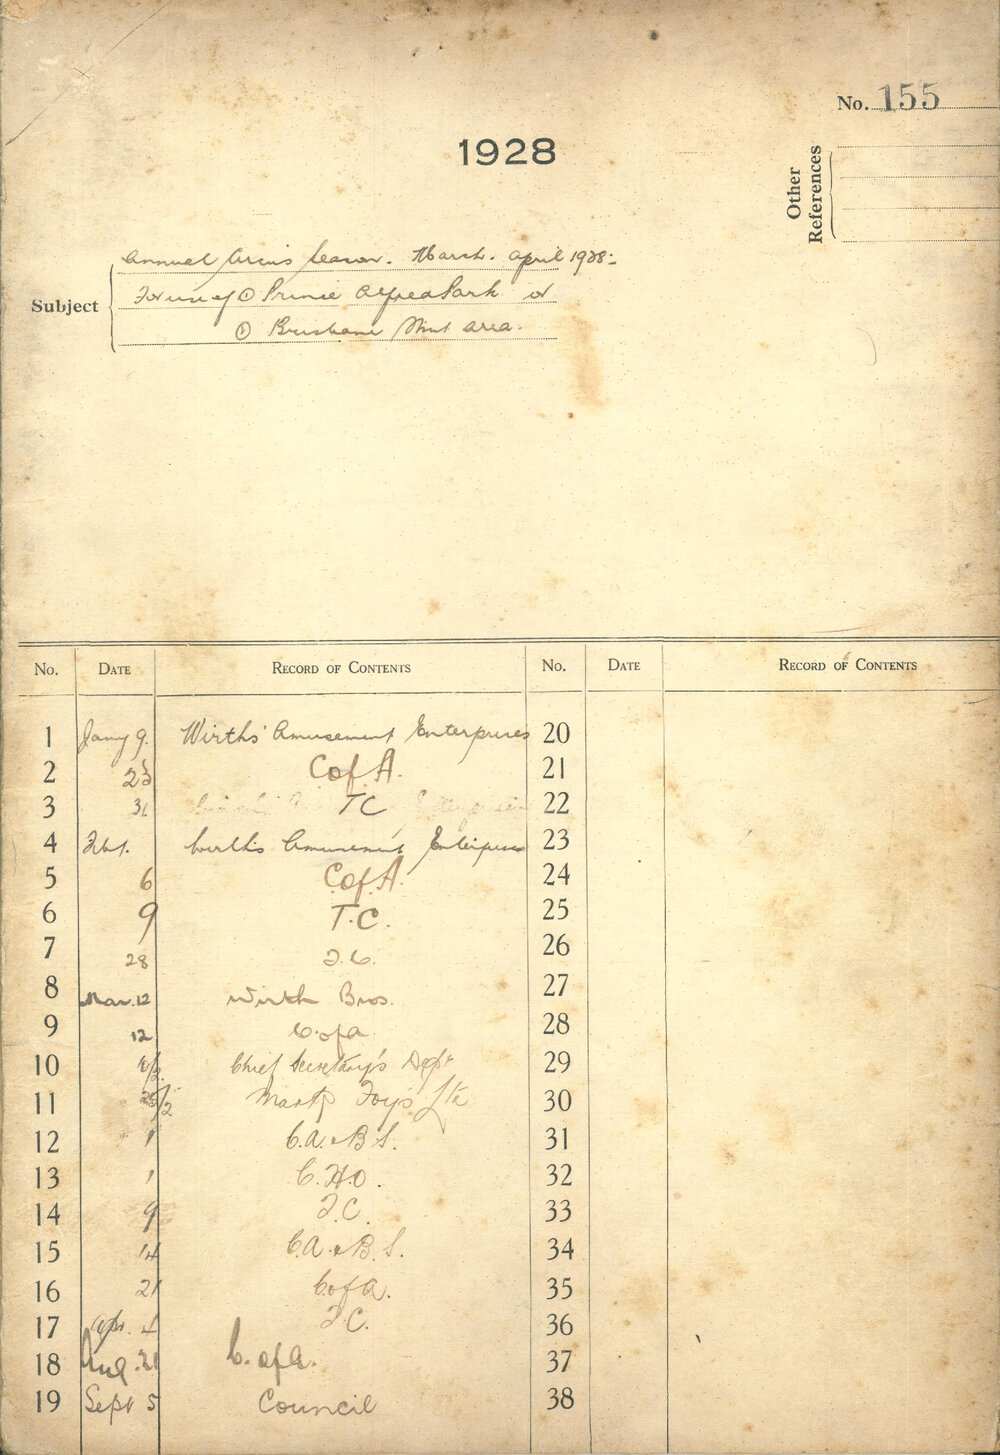 No. 155
1928
Other
References
Subject
Annual Circus Season. March. April 1928:-
For use of ① Prince Alfred Park or
② Brisbane Mint area.
No. DATE RECORD OF CONTENTS No. DATE RECORD OF CONTENTS
1 Jany 9. Wirths' Amusement Enterprises 20
2 23 C of A. 21
3 31 TC 22
4 Feb 1. Wirth's Amusement Enterprises 23
5 6 C of A. 24
6 9 T.C. 25
7 28 T.C. 26
8 Mar. 12 Wirth Bros. 27
9 12 C of A 28
10 Chief Secretary's Dept 29
11 25/2 Mark Foy's Ltd 30
12 " 1 C.A. & B.S. 31
13 1 C.H.O. 32
14 9 T.C. 33
15 14 C.A. & B.S. 34
16 21 C of A. 35
17 Apr. 4 T.C. 36
18 Aug. 21 C. of A. 37
19 Sept 5 Council 38